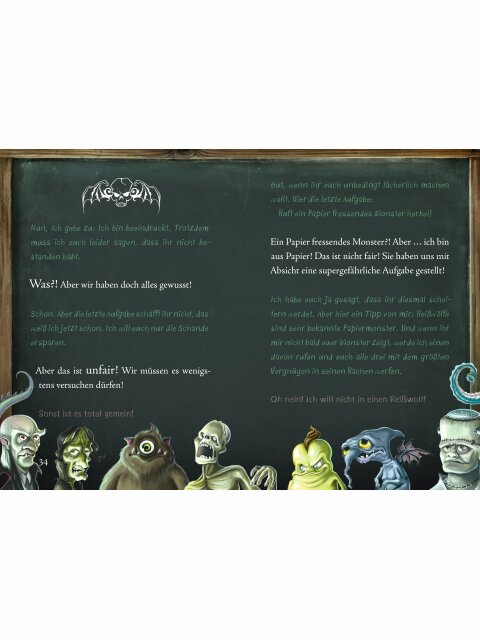 Nun, ich gebe zu: Ich bin beeindruckt. Trotzdem
muss ich euch leider sagen, dass ihr nicht be-
standen habt.
Was?! Aber wir haben doch alles gewusst!
Schon. Aber die letzte Aufgabe schafft ihr nicht, das
weiß ich jetzt schon. Ich will euch nur die Schande
ersparen.
Aber das ist unfair! Wir müssen es wenigs-
tens versuchen dürfen!
Sonst ist es total gemein!
34
Gut, wenn ihr euch unbedingt lächerlich machen
wollt. Hier die letzte Aufgabe:
Ruft ein Papier fressendes Monster herbei!
Ein Papier fressendes Monster?! Aber … ich bin
aus Papier! Das ist nicht fair! Sie haben uns mit
Absicht eine supergefährliche Aufgabe gestellt!
Ich habe euch ja gesagt, dass ihr diesmal schei-
tern werdet. Aber hier ein Tipp von mir: Reißwölfe
sind sehr bekannte Papiermonster. Und wenn ihr
mir nicht bald euer Monster zeigt, werde ich einen
davon rufen und euch alle drei mit dem größten
Vergnügen in seinen Rachen werfen.
Oh nein! Ich will nicht in einen Reißwolf!